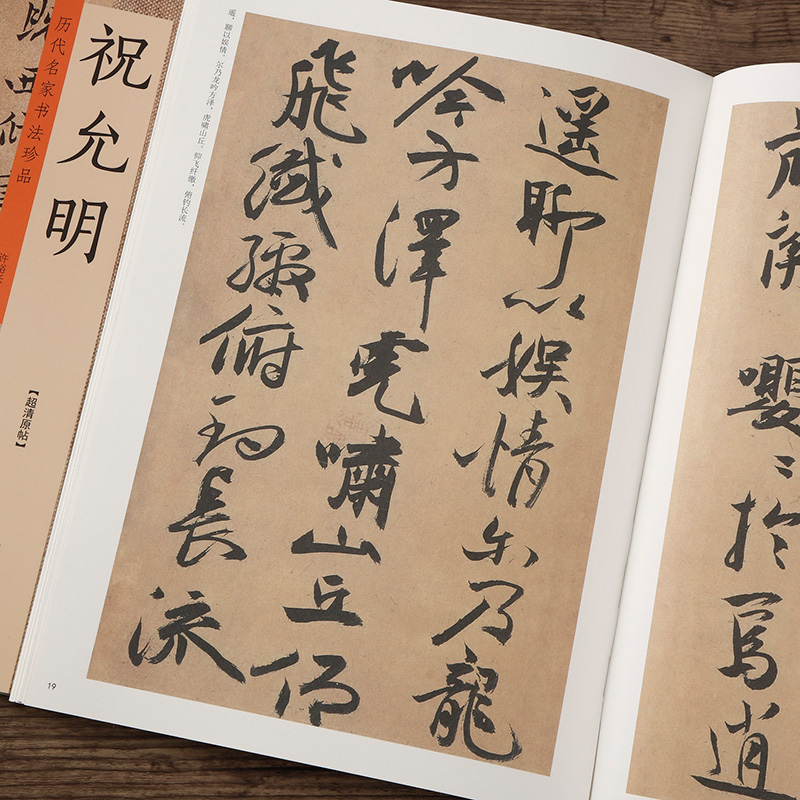 历代名家书法珍品
祝允明
【超清原帖】
遥，聊以娱情。尔乃龙吟方泽，虎啸山丘。仰飞纤缴，俯钓长流。
嚶〻於焉逍
遥聊以娱情尔乃龍
吟方澤虎嘯山丘仰
飛纖繳俯釣長流
19